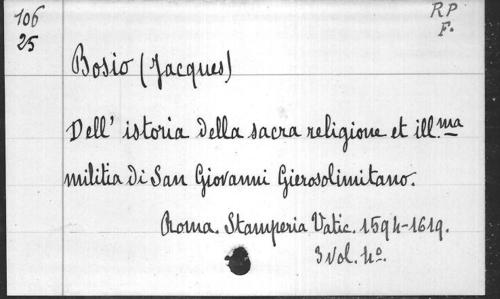 106
25
RP
F.
Bosio (Jacques)
Dell' istoria della sacra religione et ill.ma
militia di San Giovanni Gierosolimitano.
Roma. Stamperia Vatic. 1594-1619.
3 vol. 4º.